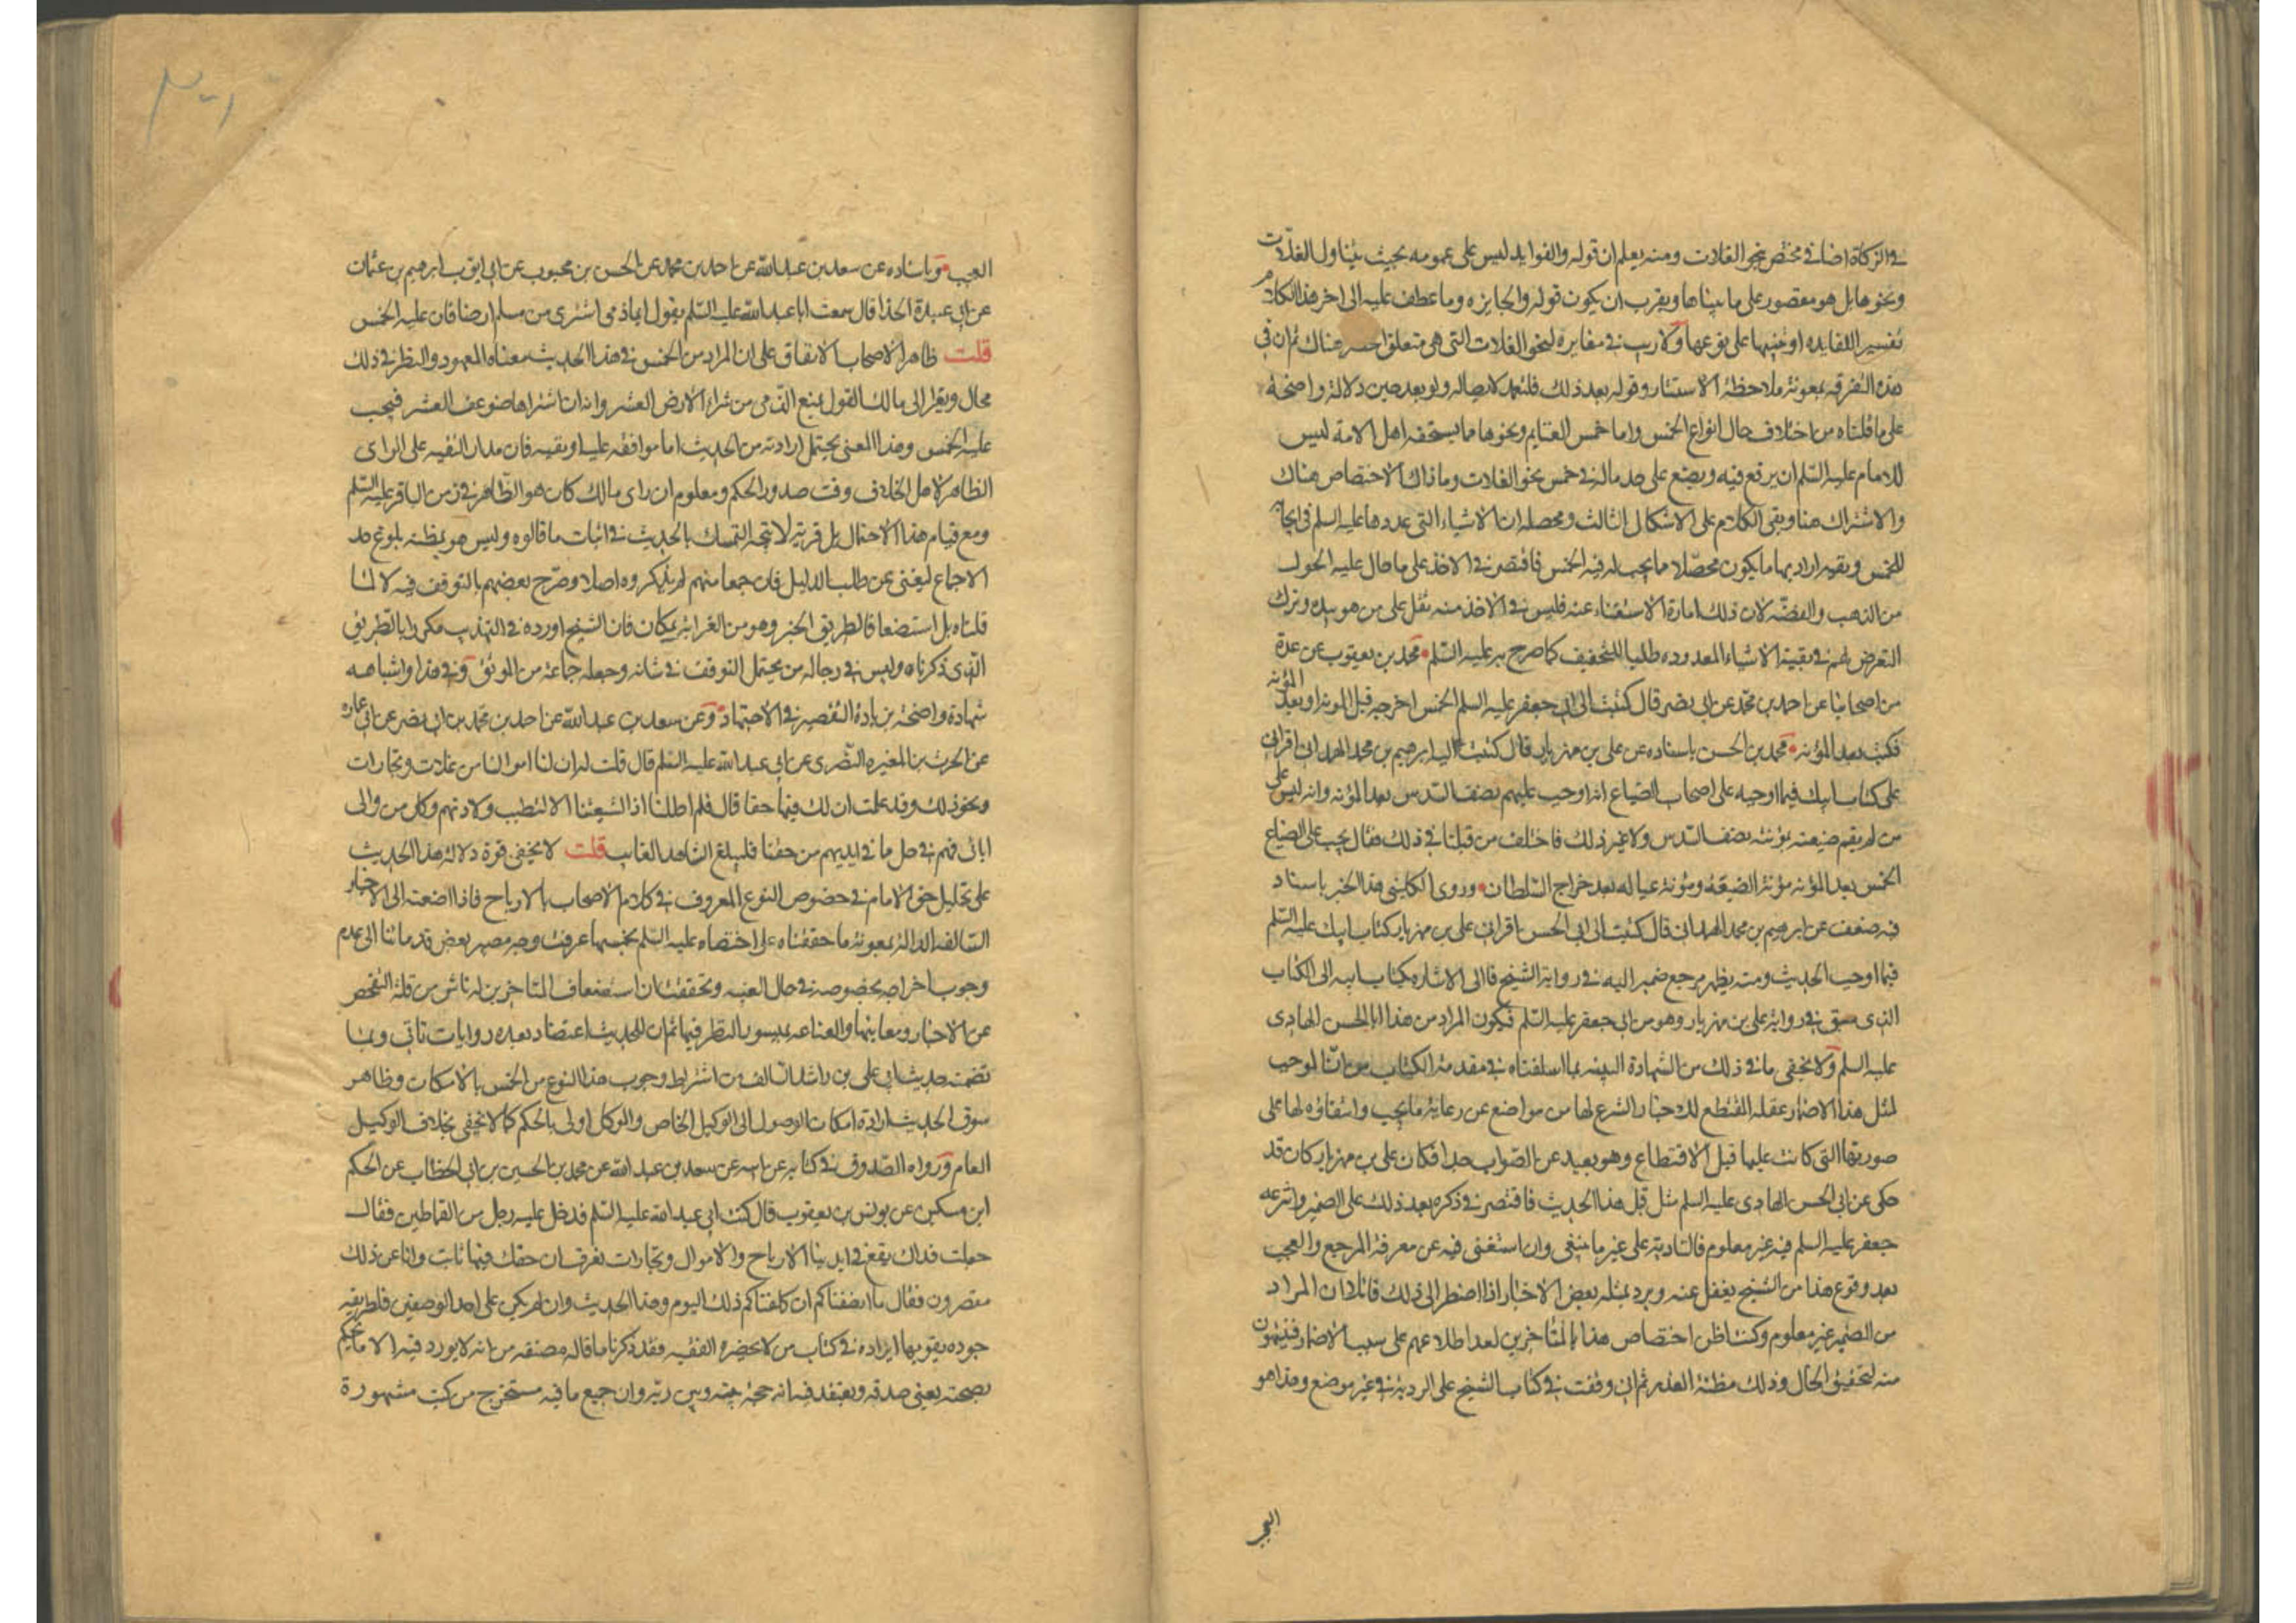 في الزكاة اضافي مختص بنحو الغلات ومنه يعلم ان قوله والفوايد ليس على عمومه بحيث يتناول الغلات
ونحوها بل هو مقصور على ما سيناها ويقرب ان يكون قوله والجايزه وما عطف عليه الى اخر هذا الكلام
تفسير اللفايده او تنبيها على نوعها ولا ريب في مغايره لنحو الغلات التي هي متعلق الخمس هناك ثم ان في
هذه التفرقه بمعونة ملاحظة الاستثنار وقوله بعد ذلك فليتعمد لايصاله ولو بعد حين دلالة واضحة
على ما قلناه من اختلاف حال انواع الخمس واما خمس الغنايم ونحوها مما يستحقه اهل الامه ليس
للامام عليه السلم ان يرفع فيه ويضع على حد ماله في خمس نحو الغلات وما ذاك الا لاختصاص هناك
والاشتراك هنا وبقى الكلام على الاشكال الثالث ومحصله ان الاشياء التي عددها عليه السلم في ايجابه
للخمس ونفيه اراد بها ما يكون محصلا مما يجب له فيه الخمس فاقتصر في الاخذ على ما حال عليه الحول
من الذهب والفضه لان ذلك امارة الاستغناء عنه فليس في الاخذ منه ثقل على من هو بيده وترك
التعرض لهم في بقية الاشياء المعدوده طلبا للتخفيف كما صرح به عليه السلم محمد بن يعقوب عن عدة
من اصحابنا عن احمد بن محمد عن ابي نصر قال كتبت الى ابي جعفر عليه السلم الخمس اخرجه قبل المونه او بعد المؤنه
فكتب بعد المؤنه محمد بن الحسن باسناده عن علي بن مهزيار قال كتبت اليه ابرهيم بن محمد الهمداني اقراني
علي كتاب ابيك فيما اوجبه على اصحاب الضياع انه اوجب عليهم نصف السدس بعد المؤنه وانه ليس على
من لم يقم ضيعته بمؤنته نصف السدس ولا غير ذلك فاختلف من قبلنا في ذلك فقال يجب على الضياع
الخمس بعد المؤنه مؤنة الضيعه ومؤنة عياله بعد خراج السلطان وروى الكليني هذا الخبر باسناد
فيه ضعف عن ابرهيم بن محمد الهمداني قال كتبت الى ابي الحسن اقراني علي بن مهزيار كتاب ابيك عليه السلم
فيما اوجب الحديث ومنه يظهر مرجع ضمير اليه في رواية الشيخ فا الى الاشاره بكتاب ابيه الى الكتاب
الذي سبق في رواية علي بن مهزيار وهو من ابي جعفر عليه السلم فيكون المراد من هذا ابا الحسن الهادي
عليه السلم ولا يخفى ما في ذلك من الشهادة البينه بما اسلفناه في مقدمة الكتاب من ان الموجب
لمثل هذا الاضمار عقله المقتطع للاخبار الشرع لها من مواضع عن رعاية ما يجب وابقاؤه لها على
صورتها التي كانت عليها قبل الاقتطاع وهو بعيد عن الصواب جدا فكان علي بن مهزيار كان قد
حكى عن ابي الحسن الهادي عليه السلم مثل قبل هذا الحديث فاقتصر في ذكره بعد ذلك على الضمير
جعفر عليه السلم فيه غير معلوم فالتاديه على غير ما ينبغي وان استغنى فيه عن معرفة المرجع والعجب
بعد وقوع هذا من الشيخ يغفل عنه ويرد بمثله بعض الاخبار اذا اضطر الى ذلك قائلا ان المراد
من الضمير غير معلوم وكنت اظن اختصاص هذا بالمتاخرين لعدم اطلاعهم على سبب الاضمار فيتهمون
منه لتحقيق الحال وذلك مظنة العذر ثم اني وقفت في كتاب الشيخ على الرد به في غير موضع وهذا هو
العجب
العجب وباسناده عن سعد بن عبد الله عن احمد بن محمد عن الحسن بن محبوب عن ابي ايوب ابرهيم بن عثمان
عن ابي عبيدة الحذا قال سمعت ابا عبد الله عليه السلم يقول ايما ذمي اشترى من مسلم ارضا فان عليه الخمس
قلت ظاهر الاصحاب الاتفاق على ان المراد من الخمس في هذا الحديث معناه المعهود وللنظر في ذلك
مجال ويعزا الى مالك القول بمنع الذمي من شراء الارض العشر وانه ان اشتراها ضوعف العشر فيجب
عليه الخمس وهذا المعنى يحتمل ارادته من الحديث اما موافقه عليه او تقيه فان مدار التقيه على الراى
الظاهر لاهل الخلاف وقت صدور الحكم ومعلوم ان راى مالك كان هو الظاهر في زمن الباقر عليه السلم
ومع قيام هذا الاحتمال بل قربه لا يتجه التمسك بالحديث في اثبات ما قالوه وليس هو بمظنه بلوغ حد
الاجماع ليغنى عن طلب الدليل فان جمعا منهم لم يذكروه اصلا وصرح بعضهم بالتوقف فيه لا لما
قلناه بل استضعافا لطريق الخبر وهو من الغرابة بمكان فان الشيخ اورده في التهذيب مكررا بالطريق
الذي ذكرناه وليس في رجاله من يحتمل التوقف في شانه وجعله جماعة من الموثق وفي هذا واشباهه
شهادة واضحة بزيادة التقصير في الاجتهاد وعن سعد بن عبد الله عن احمد بن محمد بن ابي نصر عن ابي عماره
عن الحرث بن المغيره النصري عن ابي عبد الله عليه السلم قال قلت له ان لنا اموالا من غلات وتجارات
ونحو ذلك وقد علمت ان لك فيها حقا قال فلم احللنا اذا لشيعتنا الا لتطيب ولادتهم وكل من والى
ابائي فهم في حل مما في ايديهم من حقنا فليبلغ الشاهد الغايب قلت لا يخفى قوة دلالة هذا الحديث
على تحليل حق الامام في خصوص النوع المعروف في كلام الاصحاب بالارباح فاذا اضفته الى الاخبار
السالفه الدالة بمعونة ما حققناه على اختصاصه عليه السلم بخمسها عرفت وجه مصير بعض قدمائنا الى عدم
وجوب اخراجه بخصوصه في حال الغيبه وتحققت ان استضعاف المتاخرين له ناش من قلة التفحص
عن الاخبار ومعانيها والقناعه بميسور النظر فيها ثم ان للحديث اعتضادا بعده روايات تاتي وبما
تضمنه حديث ابي علي بن راشد السالف من اشتراط وجوب هذا النوع من الخمس بالامكان وظاهر
سوق الحديث ارادة امكان الوصول الى الوكيل الخاص والموكل اولى بالحكم كما لا يخفى بخلاف الوكيل
العام ورواه الصدوق في كتابه عن ابيه عن سعد بن عبد الله عن محمد بن الحسين بن ابي الخطاب عن الحكم
ابن مسكين عن يونس بن يعقوب قال كنت ابي عبد الله عليه السلم فدخل عليه رجل من القماطين فقال
جعلت فداك يقع في ايدينا الارباح والاموال وتجارات نعرف ان حقك فيها ثابت وانا عن ذلك
مقصرون فقال ما انصفناكم ان كلفناكم ذلك اليوم وهذا الحديث وان لم يكن على احد الوصفين فلطريقه
جوده يقويها ايراده في كتاب من لا يحضره الفقيه فقد ذكرنا ما قاله مصنفه من انه لا يورد فيه الا ما يحكم
بصحته يعني صدقه ويعتقد فيه انه حجة بينه وبين ربه وان جميع ما فيه مستخرج من كتب مشهورة